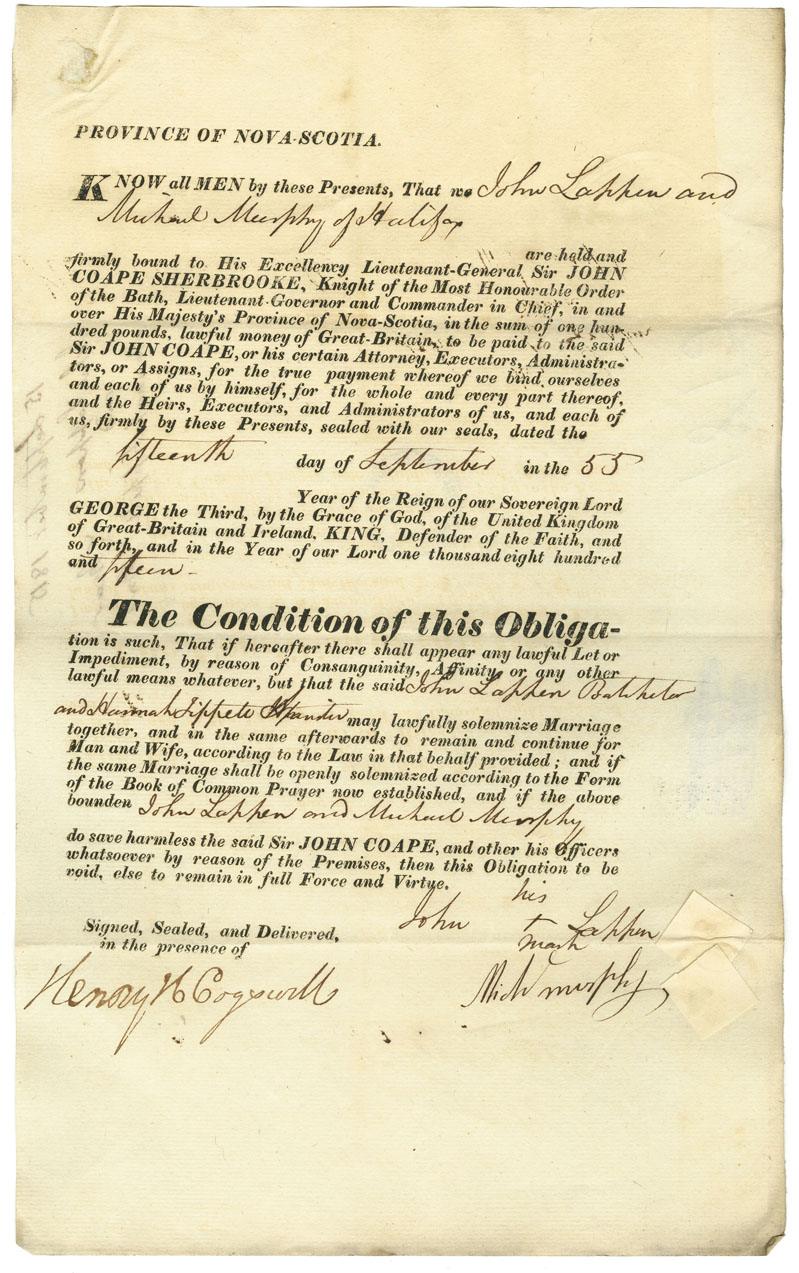 PROVINCE OF NOVA-SCOTIA.
KNOW all MEN by these Presents, That we John Lappen and
Michael Murphy of Halifax
are held and
firmly bound to His Excellency Lieutenant-General Sir JOHN
COAPE SHERBROOKE, Knight of the Most Honourable Order
of the Bath, Lieutenant-Governor and Commander in Chief, in and
over His Majesty's Province of Nova-Scotia, in the sum of one hun-
dred pounds, lawful money of Great-Britain, to be paid to the said
Sir JOHN COAPE, or his certain Attorney, Executors, Administra-
tors, or Assigns, for the true payment whereof we bind ourselves
and each of us by himself, for the whole and every part thereof,
and the Heirs, Executors, and Administrators of us, and each of
us, firmly by these Presents, sealed with our seals, dated the
fifteenth day of September in the 55
Year of the Reign of our Sovereign Lord
GEORGE the Third, by the Grace of God, of the United Kingdom
of Great-Britain and Ireland, KING, Defender of the Faith, and
so forth, and in the Year of our Lord one thousand eight hundred
and fifteen -
The Condition of this Obliga-
tion is such, That if hereafter there shall appear any lawful Let or
Impediment, by reason of Consanguinity, Affinity, or any other
lawful means whatever, but that the said John Lappen Batchelor
and Hannah Tippett Spinster may lawfully solemnize Marriage
together, and in the same afterwards to remain and continue for
Man and Wife, according to the Law in that behalf provided; and if
the same Marriage shall be openly solemnized according to the Form
of the Book of Common Prayer now established, and if the above
bounden John Lappen and Michael Murphy
do save harmless the said Sir JOHN COAPE, and other his Officers
whatsoever by reason of the Premises, then this Obligation to be
void, else to remain in full Force and Virtue.
his
John + Lappen
mark
Signed, Sealed, and Delivered,
in the presence of
Henry H Cogswell
Michl murphy